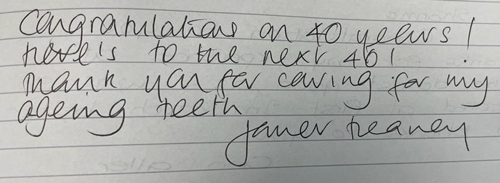 Congratulations on 40 years!
here's to the next 40!
Thank you for caring for my
ageing teeth